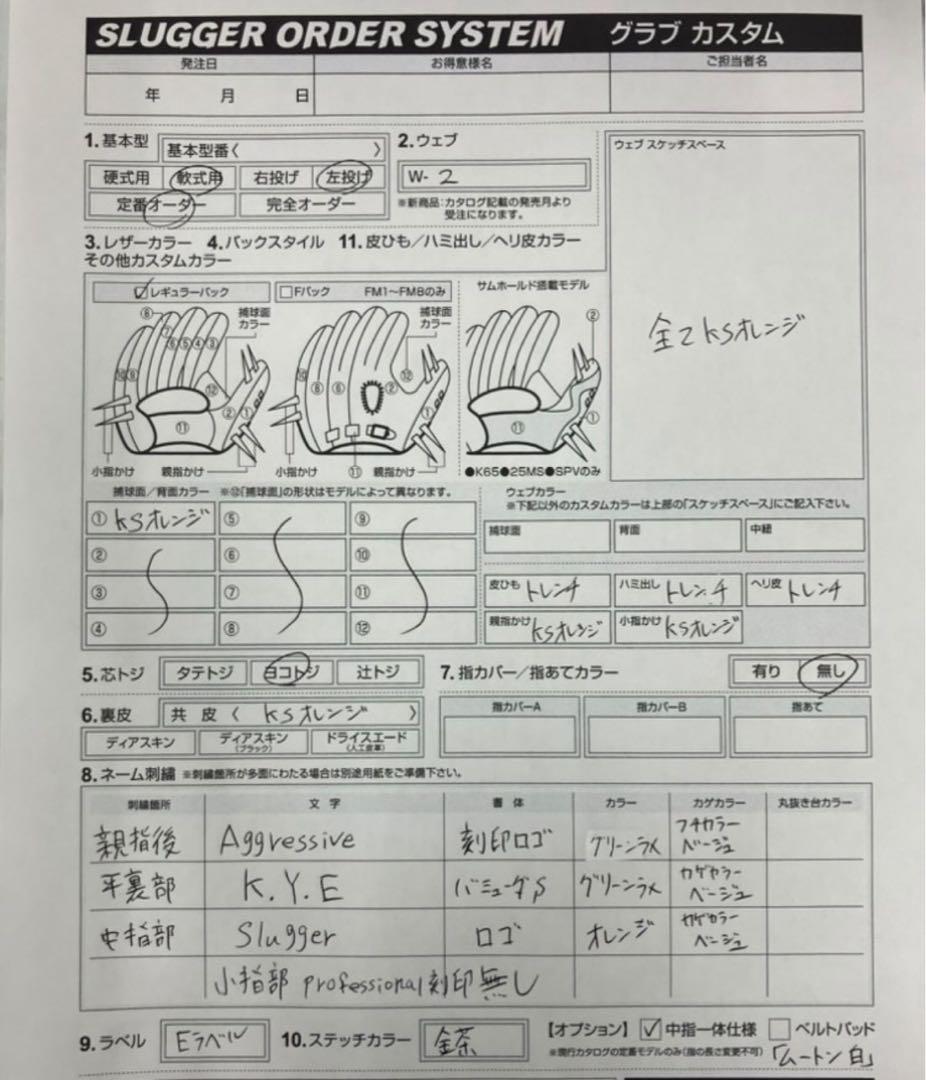 SLUGGER ORDER SYSTEM グラブ カスタム
発注日 お得意様名 ご担当者名
年 月 日
1.基本型 基本型番〈 〉 2.ウェブ ウェブ スケッチスペース
硬式用 軟式用 右投げ 左投げ W- 2
定番オーダー 完全オーダー ※新商品:カタログ記載の発売月より
受注になります。
3.レザーカラー 4.バックスタイル 11.皮ひも/ハミ出し/ヘリ皮カラー
その他カスタムカラー
レギュラーバック Fバック FM1〜FM8のみ サムホールド搭載モデル
捕球面カラー 捕球面カラー
全てKSオレンジ
⑧ ⑦ ⑥ ⑤ ④ ③ ⑩ ⑨ ⑫ ② ① ⑪
⑩ ⑧ ⑥ ② ⑫ ① ⑪
② ① ⑪
小指かけ 親指かけ 小指かけ 親指かけ ●K65●25MS●SPVのみ
捕球面/背面カラー ※⑫「捕球面」の形状はモデルによって異なります。 ウェブカラー
※下記以外のカスタムカラーは上部の「スケッチスペース」にご記入下さい。
① KSオレンジ ⑤ ⑨ 捕球面 背面 中紐
② ⑥ ⑩
③ ⑦ ⑪ 皮ひも トレンチ ハミ出し トレンチ ヘリ皮 トレンチ
④ ⑧ ⑫ 親指かけ KSオレンジ 小指かけ KSオレンジ
5.芯トジ タテトジ ヨコトジ 辻トジ 7.指カバー/指あてカラー 有り 無し
6.裏皮 共 皮〈 KSオレンジ 〉 指カバーA 指カバーB 指あて
ディアスキン ディアスキン(ブラック) ドライスエード(人工皮革)
8.ネーム刺繍 ※刺繍箇所が多面にわたる場合は別途用紙をご準備下さい。
刺繍箇所 文 字 書 体 カラー カゲカラー 丸抜き台カラー
親指後 Aggressive 刻印ロゴ グリーンラメ フチカラー ベージュ
平裏部 K.Y.E バミューダS グリーンラメ カゲカラー ベージュ
中指部 Slugger ロゴ オレンジ カゲカラー ベージュ
小指部 professional刻印無し
9.ラベル Eラベル 10.ステッチカラー 金茶 【オプション】 中指一体仕様 ベルトパッド
※現行カタログの定番モデルのみ(指の長さ変更不可) 「ムートン 白」